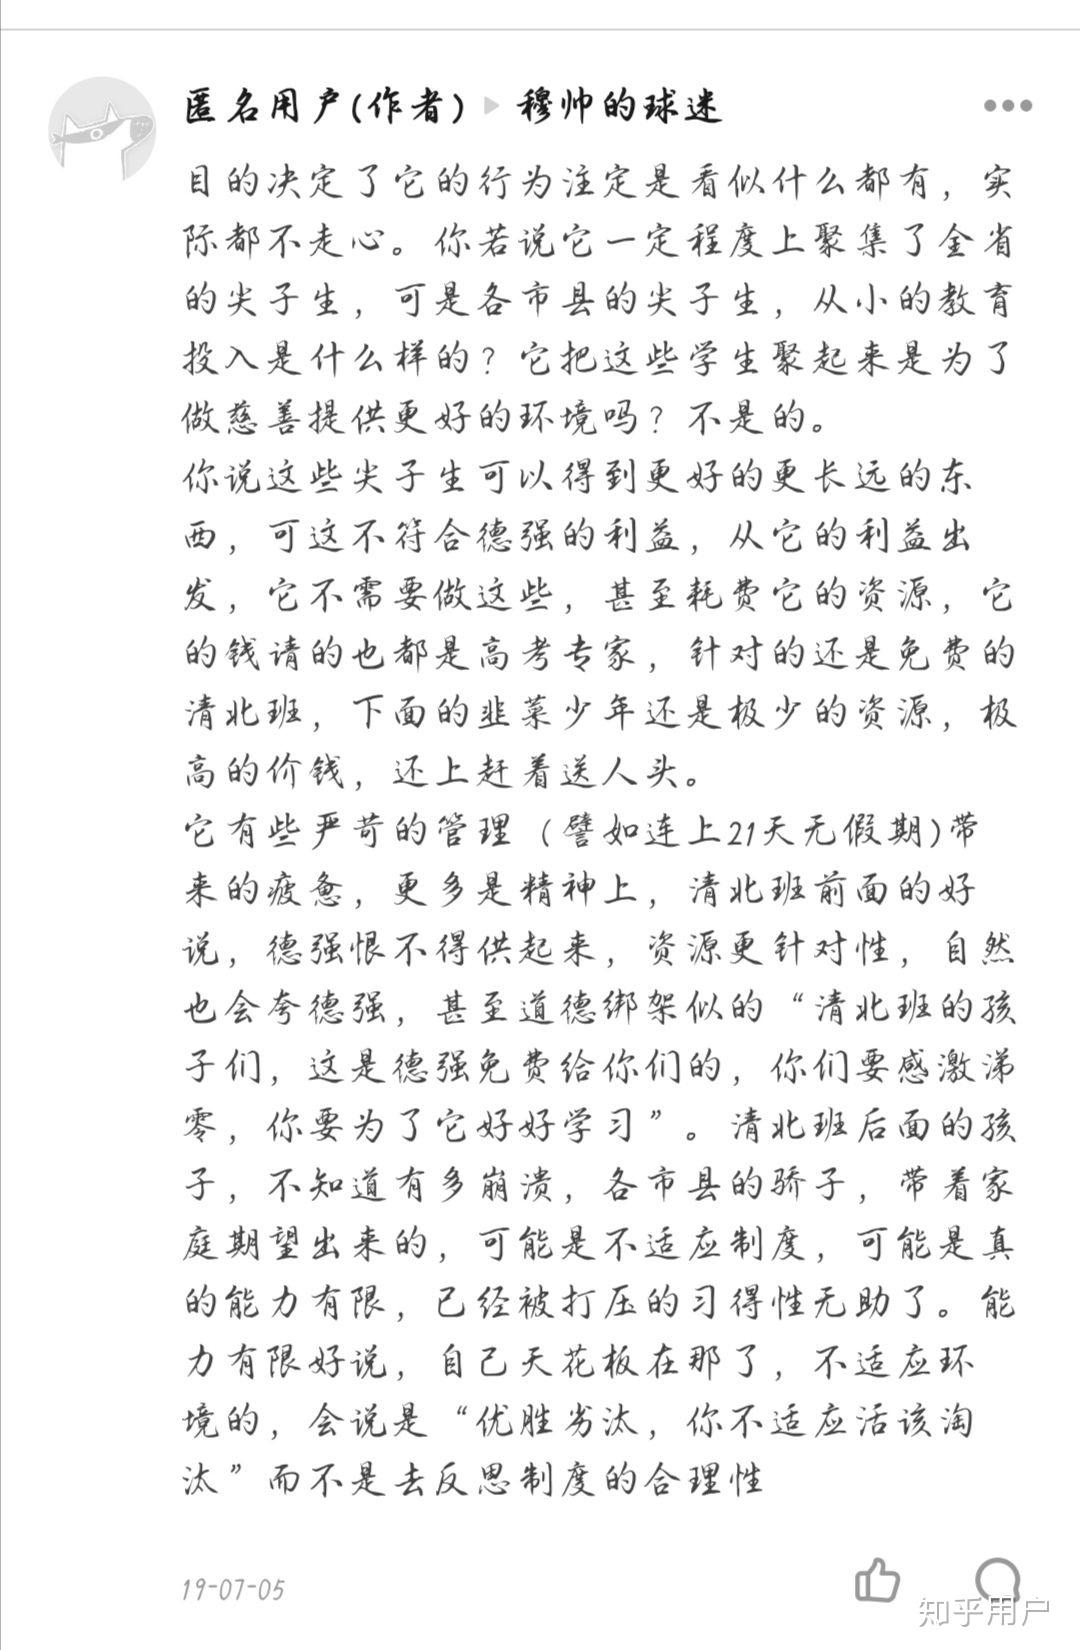 匿名用户(作者) ▶ 穆帅的球迷
目的决定了它的行为注定是看似什么都有，实
际都不走心。你若说它一定程度上聚集了全省
的尖子生，可是各市县的尖子生，从小的教育
投入是什么样的？它把这些学生聚起来是为了
做慈善提供更好的环境吗？不是的。
你说这些尖子生可以得到更好的更长远的东
西，可这不符合德强的利益，从它的利益出
发，它不需要做这些，甚至耗费它的资源，它
的钱请的也都是高考专家，针对的还是免费的
清北班，下面的韭菜少年还是极少的资源，极
高的价钱，还上赶着送人头。
它有些严苛的管理（譬如连上21天无假期)带
来的疲惫，更多是精神上，清北班前面的好
说，德强恨不得供起来，资源更针对性，自然
也会夸德强，甚至道德绑架似的“清北班的孩
子们，这是德强免费给你们的，你们要感激涕
零，你要为了它好好学习”。清北班后面的孩
子，不知道有多崩溃，各市县的骄子，带着家
庭期望出来的，可能是不适应制度，可能是真
的能力有限，已经被打压的习得性无助了。能
力有限好说，自己天花板在那了，不适应环
境的，会说是“优胜劣汰，你不适应活该淘
汰”而不是去反思制度的合理性
19-07-05
知乎用户